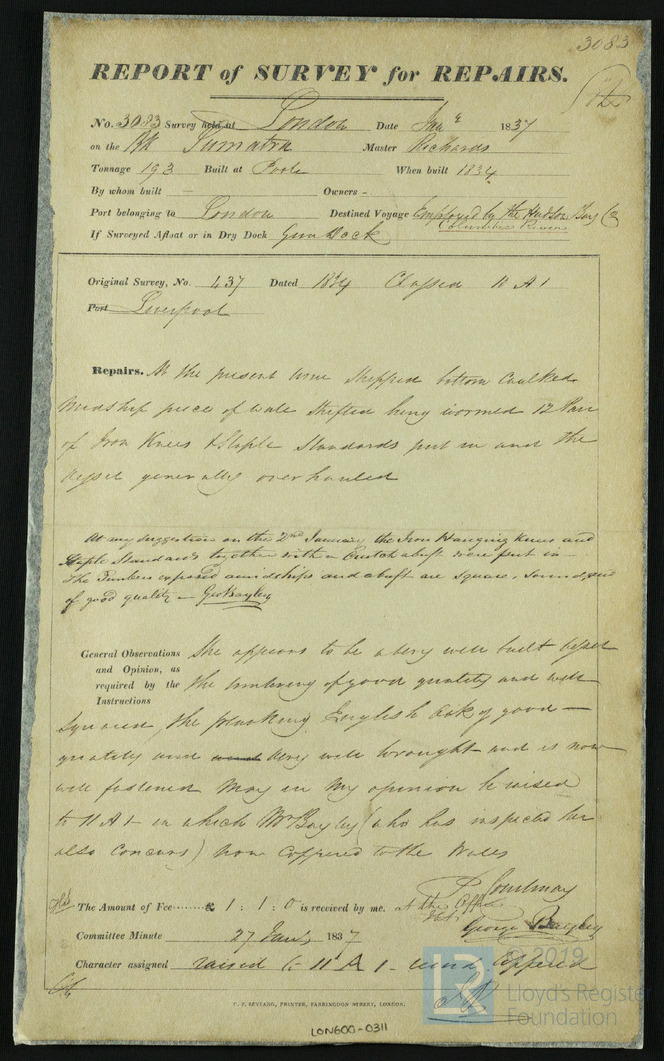 3083
REPORT of SURVEY for REPAIRS.
No. 3083 Survey held at London Date Jany 1837
on the Bk Sumatra Master Richards
Tonnage 193 Built at Poole When built 1834
By whom built — Owners -
Port belonging to London Destined Voyage Employed by the Hudson Bay Co
Columbia River
If Surveyed Afloat or in Dry Dock Gun Dock
Original Survey, No. 437 Dated 1834 Classed 10 A 1
Port Liverpool
Repairs. At the present time stripped bottom Caulked
Midship piece of Wale shifted being wormed 12 Pair
of Iron Knees & Staple Standards put in and the
Vessel generally overhauled
At my suggestion on the 2nd January the Iron Hanging Knees and
Staple Standards together with a Crutch abaft were put in -
The Timbers exposed amidships and abaft are square, sound, and
of good quality - Geo Bayley
General Observations and Opinion, as required by the Instructions
She appears to be a very well built Vessel
the timbering of good quality and well
squared, the planking English Oak of good
quality and and very well wrought and is now
well fastened May in my opinion be raised
to 11 A 1 in which Mr Bayley (who has inspected her
also Concurs) now Coppered to the Wales
The Amount of Fee £ 1 : 1 : 0 is received by me.
at the Office
P. Courtenay
George Bayley
Committee Minute 27 Jany 1837
Character assigned raised to 11 A 1 - Coppered
C. F. SEYFANG, PRINTER, FARRINGDON STREET, LONDON.
LON600-0311
LR © 2019
Lloyd's Register
Foundation